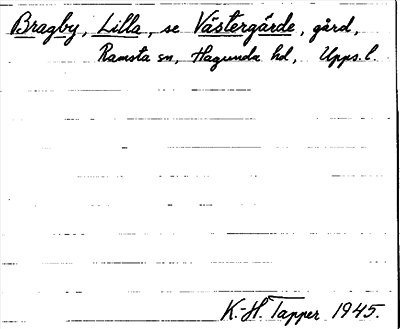 Bragby, Lilla, se Västergärde, gård,
Ramsta sn, Hagunda hd, Upps. l.
K.-H. Tapper 1945.